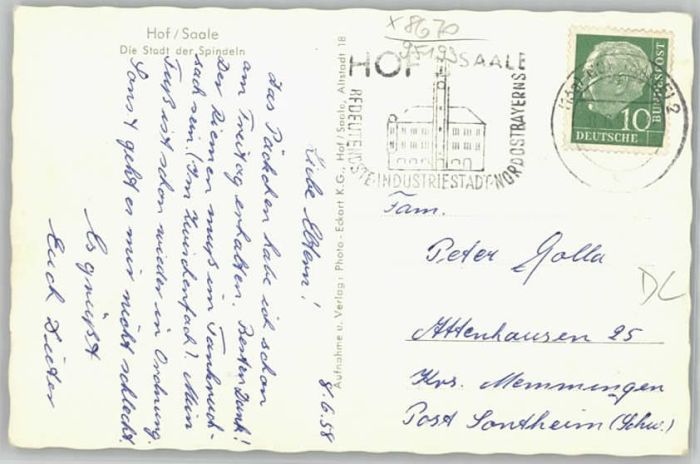 Hof/Saale
Die Stadt der Spindeln
8.6.58
Liebe Eltern!
das Päckchen habe ich schon
am Freitag erhalten. Besten Dank!
Der Riemen muß im Tankruck-
sack sein (Im Zwischenfach). Mein
Fuß ist schon wieder in Ordnung.
Sonst geht es mir nicht schlecht.
Es grüßt
Euch Dieter
Aufnahme u. Verlag: Photo-Eckart K.G., Hof/Saale, Altstadt 18
x 8670
95193
HOF SAALE
BEDEUTENDSTE INDUSTRIESTADT NORDOSTBAYERNS
10
DEUTSCHE
BUNDESPOST
2
Fam.
Peter Golla
DL
Attenhausen 25
Krs. Memmingen
Post Sontheim (Schw.)